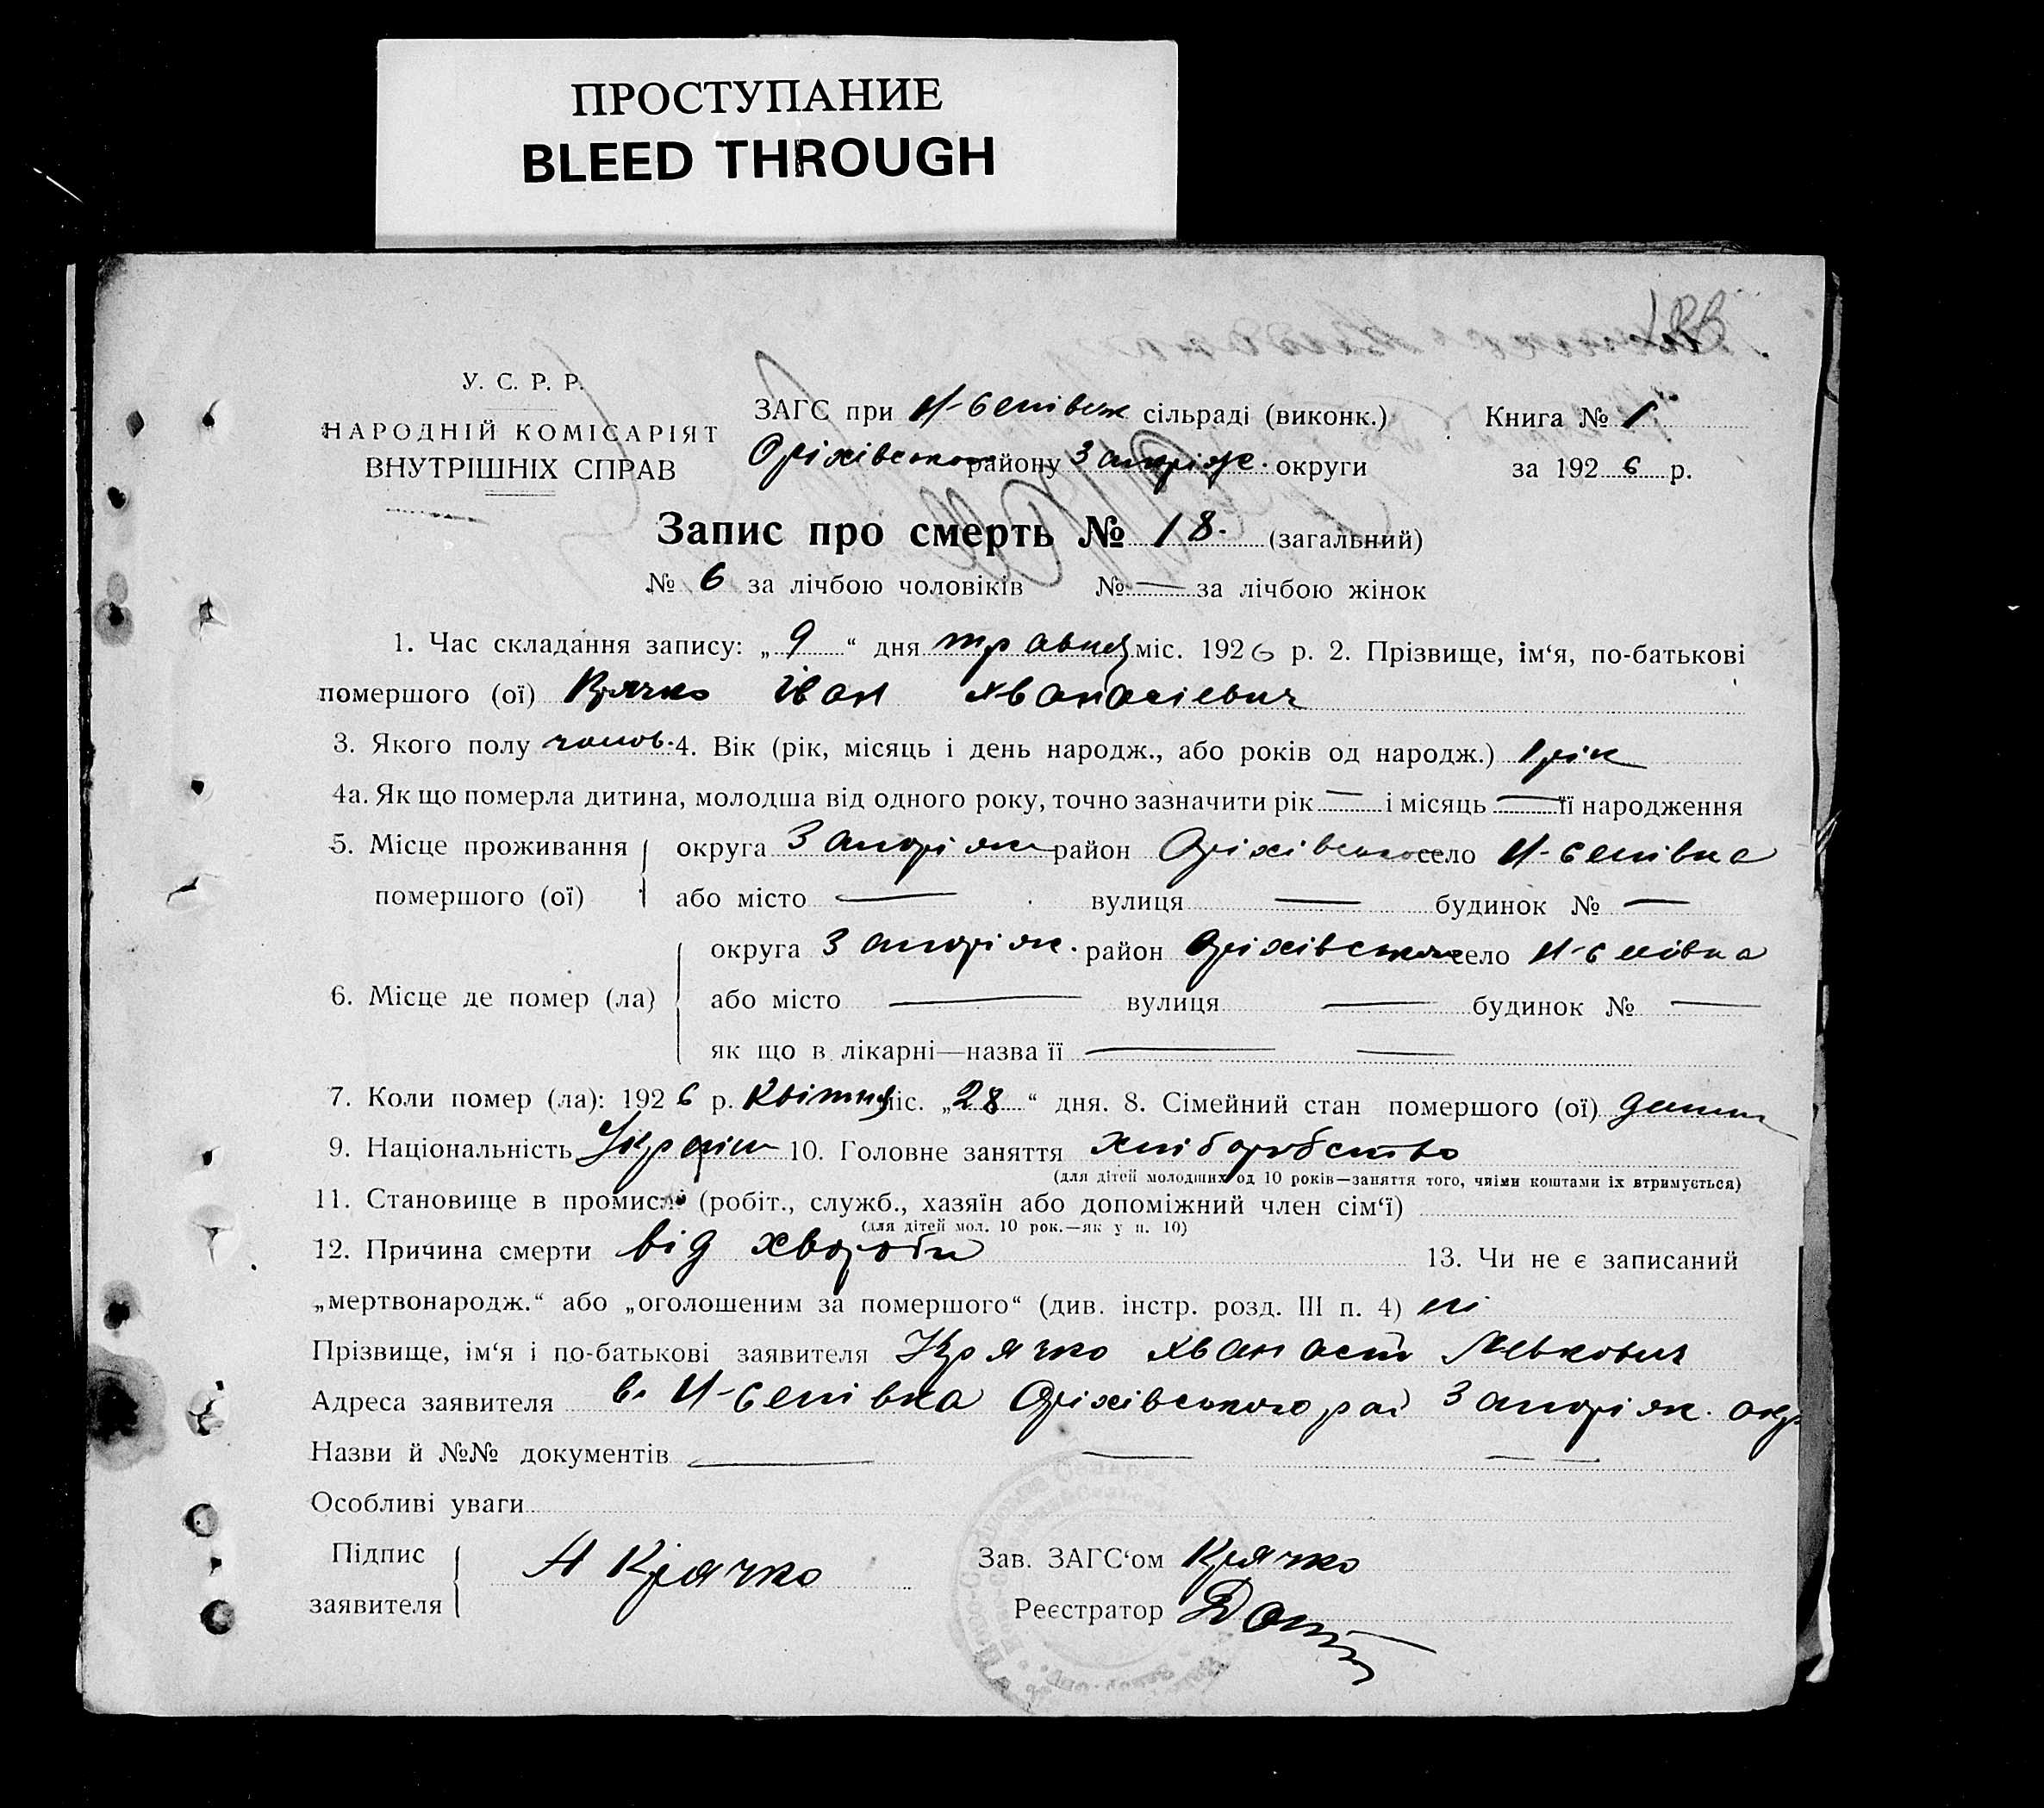 ПРОСТУПАНИЕ
BLEED THROUGH
У. С. Р. Р.
НАРОДНІЙ КОМІСАРІЯТ
ВНУТРІШНІХ СПРАВ
ЗАГС при сільраді (виконк.)
Оріхівського району Запоріж. округи
Книга № 1
за 1926 р.
Запис про смерть № 18. (загальний)
№ 6 за лічбою чоловіків № — за лічбою жінок
1. Час складання запису: „ 9 “ дня травня міс. 1926 р. 2. Прізвище, ім‘я, по-батькові
помершого (ої) Крячко Іван Хванасіевич
3. Якого полу чолов. 4. Вік (рік, місяць і день народж., або років од народж.) 1 рік
4а. Як що померла дитина, молодша від одного року, точно зазначити рік — і місяць — її народження
5. Місце проживання помершого (ої)
округа Запоріж район Оріхівсько село
або місто — вулиця — будинок № —
6. Місце де помер (ла)
округа Запоріж. район село
або місто — вулиця — будинок № —
як що в лікарні—назва її — —
7. Коли помер (ла): 1926 р. Квітня міс. „ 28 “ дня. 8. Сімейний стан помершого (ої)
9. Національність 10. Головне заняття хліборобство
(для дітей молодших од 10 років—заняття того, чиїми коштами їх втримується)
11. Становище в промислі (робіт., служб., хазяїн або допоміжний член сім‘ї)
(для дітей мол. 10 рок.—як у п. 10)
12. Причина смерти від хвороби 13. Чи не є записаний
„мертвонародж.“ або „оголошеним за помершого“ (див. інстр. розд. III п. 4) ні
Прізвище, ім‘я і по-батькові заявителя Крячко Хванасій Левкович
Адреса заявителя Оріхівського рай Запоріж. окр.
Назви й №№ документів — — —
Особливі уваги
Підпис заявителя А Крячко
Зав. ЗАГС‘ом Крячко
Реєстратор